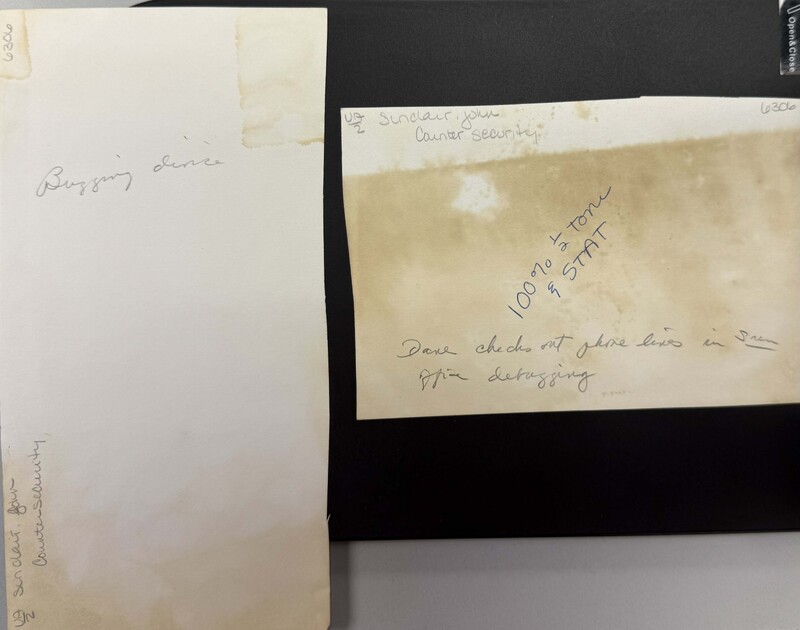 6306
Bugging divice
Sinclair, John
Countersecurity
Sinclair, John
Counter security
6306
100% ½ Tone
& STAT
Dane checks out phone lines in
office debugging
Open&Close